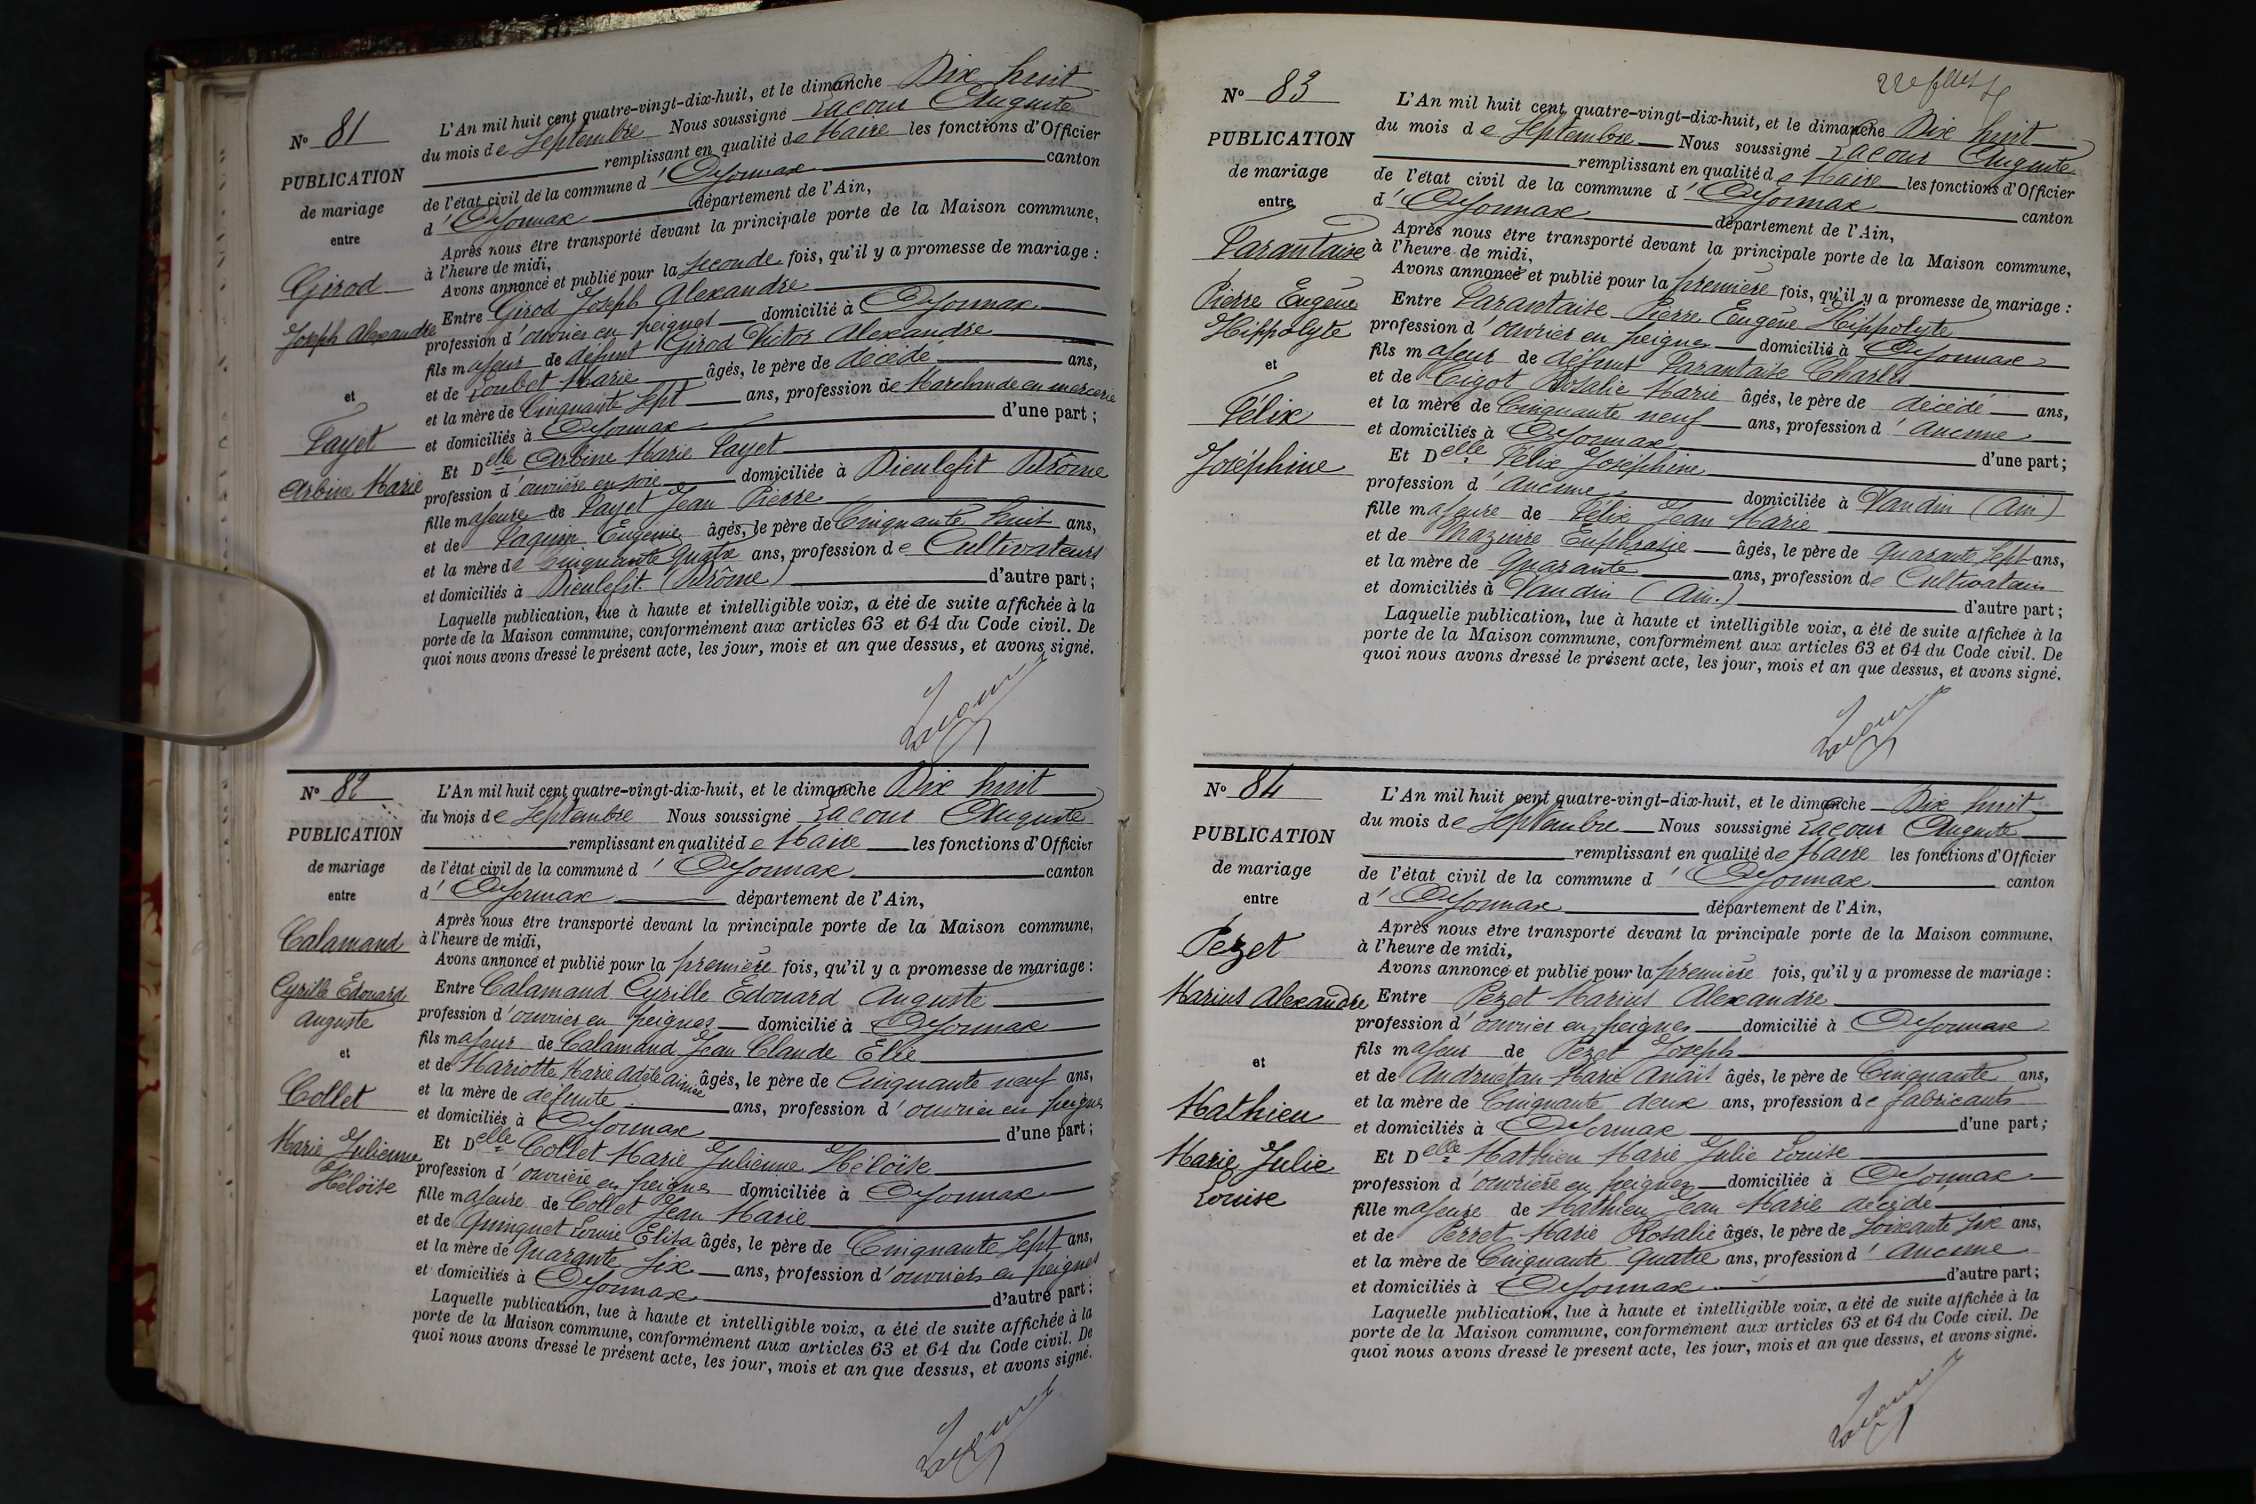 N° 81
PUBLICATION
de mariage
entre
Girod
Joseph Alexandre
et
Payet
Arbine Marie
L'An mil huit cent quatre-vingt-dix-huit, et le dimanche Dix huit
du mois de Septembre Nous soussigné Lacour Auguste
remplissant en qualité de Maire les fonctions d'Officier
de l'état civil de la commune d'Oyonnax canton
d'Oyonnax département de l'Ain,
Après nous être transporté devant la principale porte de la Maison commune,
à l'heure de midi,
Avons annoncé et publié pour la seconde fois, qu'il y a promesse de mariage :
Entre Girod Joseph Alexandre
profession d'ouvrier en peignes domicilié à Oyonnax
fils majeur de défunt Girod Victor Alexandre
et de Loubet Marie âgés, le père de décédé ans,
et la mère de Cinquante sept ans, profession de Marchande en mercerie
et domiciliés à Oyonnax d'une part ;
Et Delle Arbine Marie Payet
profession d'ouvrière en soie domiciliée à Dieulefit Drôme
fille majeure de Payet Jean Pierre
et de Paquin Eugénie âgés, le père de Cinquante huit ans,
et la mère de Cinquante quatre ans, profession de Cultivateurs
et domiciliés à Dieulefit (Drôme) d'autre part ;
Laquelle publication, lue à haute et intelligible voix, a été de suite affichée à la
porte de la Maison commune, conformément aux articles 63 et 64 du Code civil. De
quoi nous avons dressé le présent acte, les jour, mois et an que dessus, et avons signé.
Lacour
N° 82
PUBLICATION
de mariage
entre
Calamand
Cyrille Edouard
Auguste
et
Collet
Marie Julienne
Héloïse
L'An mil huit cent quatre-vingt-dix-huit, et le dimanche Dix huit
du mois de Septembre Nous soussigné Lacour Auguste
remplissant en qualité de Maire les fonctions d'Officier
de l'état civil de la commune d'Oyonnax canton
d'Oyonnax département de l'Ain,
Après nous être transporté devant la principale porte de la Maison commune,
à l'heure de midi,
Avons annoncé et publié pour la première fois, qu'il y a promesse de mariage :
Entre Calamand Cyrille Edouard Auguste
profession d'ouvrier en peignes domicilié à Oyonnax
fils majeur de Calamand Jean Claude Elie
et de Mariotte Marie Adèle Aimée âgés, le père de Cinquante neuf ans,
et la mère de défunte ans, profession d'ouvrier en peignes
et domiciliés à Oyonnax d'une part ;
Et Delle Collet Marie Julienne Héloïse
profession d'ouvrière en peignes domiciliée à Oyonnax
fille majeure de Collet Jean Marie
et de Quinquet Louise Elisa âgés, le père de Cinquante sept ans,
et la mère de Quarante six ans, profession d'ouvriers en peignes
et domiciliés à Oyonnax d'autre part ;
Laquelle publication, lue à haute et intelligible voix, a été de suite affichée à la
porte de la Maison commune, conformément aux articles 63 et 64 du Code civil. De
quoi nous avons dressé le présent acte, les jour, mois et an que dessus, et avons signé.
Lacour
N° 83
PUBLICATION
de mariage
entre
Parantaise
Pierre Eugène
Hippolyte
et
Félix
Joséphine
L'An mil huit cent quatre-vingt-dix-huit, et le dimanche Dix huit
du mois de Septembre Nous soussigné Lacour Auguste
remplissant en qualité de Maire les fonctions d'Officier
de l'état civil de la commune d'Oyonnax canton
d'Oyonnax département de l'Ain,
Après nous être transporté devant la principale porte de la Maison commune,
à l'heure de midi,
Avons annoncé et publié pour la première fois, qu'il y a promesse de mariage :
Entre Parantaise Pierre Eugène Hippolyte
profession d'ouvrier en peignes domicilié à Oyonnax
fils majeur de défunt Parantaise Charles
et de Cigot Rosalie Marie âgés, le père de décédé ans,
et la mère de Cinquante neuf ans, profession d'aucune
et domiciliés à Oyonnax d'une part ;
Et Delle Félix Joséphine
profession d'aucune domiciliée à Vandin (Ain)
fille majeure de Félix Jean Marie
et de Mazuire Euphrasie âgés, le père de Quarante sept ans,
et la mère de Quarante ans, profession de Cultivateurs
et domiciliés à Vandin (Ain.) d'autre part ;
Laquelle publication, lue à haute et intelligible voix, a été de suite affichée à la
porte de la Maison commune, conformément aux articles 63 et 64 du Code civil. De
quoi nous avons dressé le présent acte, les jour, mois et an que dessus, et avons signé.
Lacour
N° 84
PUBLICATION
de mariage
entre
Pezet
Marius Alexandre
et
Mathieu
Marie Julie
Louise
L'An mil huit cent quatre-vingt-dix-huit, et le dimanche Dix huit
du mois de Septembre Nous soussigné Lacour Auguste
remplissant en qualité de Maire les fonctions d'Officier
de l'état civil de la commune d'Oyonnax canton
d'Oyonnax département de l'Ain,
Après nous être transporté devant la principale porte de la Maison commune,
à l'heure de midi,
Avons annoncé et publié pour la première fois, qu'il y a promesse de mariage :
Entre Pezet Marius Alexandre
profession d'ouvrier en peignes domicilié à Oyonnax
fils majeur de Pezet Joseph
et de Andruétan Marie Anaïs âgés, le père de Cinquante ans,
et la mère de Cinquante deux ans, profession de fabricants
et domiciliés à Oyonnax d'une part ;
Et Delle Mathieu Marie Julie Louise
profession d'ouvrière en peignes domiciliée à Oyonnax
fille majeure de Mathieu Jean Marie décédé
et de Perret Marie Rosalie âgés, le père de Soixante six ans,
et la mère de Cinquante quatre ans, profession d'aucune
et domiciliés à Oyonnax d'autre part ;
Laquelle publication, lue à haute et intelligible voix, a été de suite affichée à la
porte de la Maison commune, conformément aux articles 63 et 64 du Code civil. De
quoi nous avons dressé le présent acte, les jour, mois et an que dessus, et avons signé.
Lacour